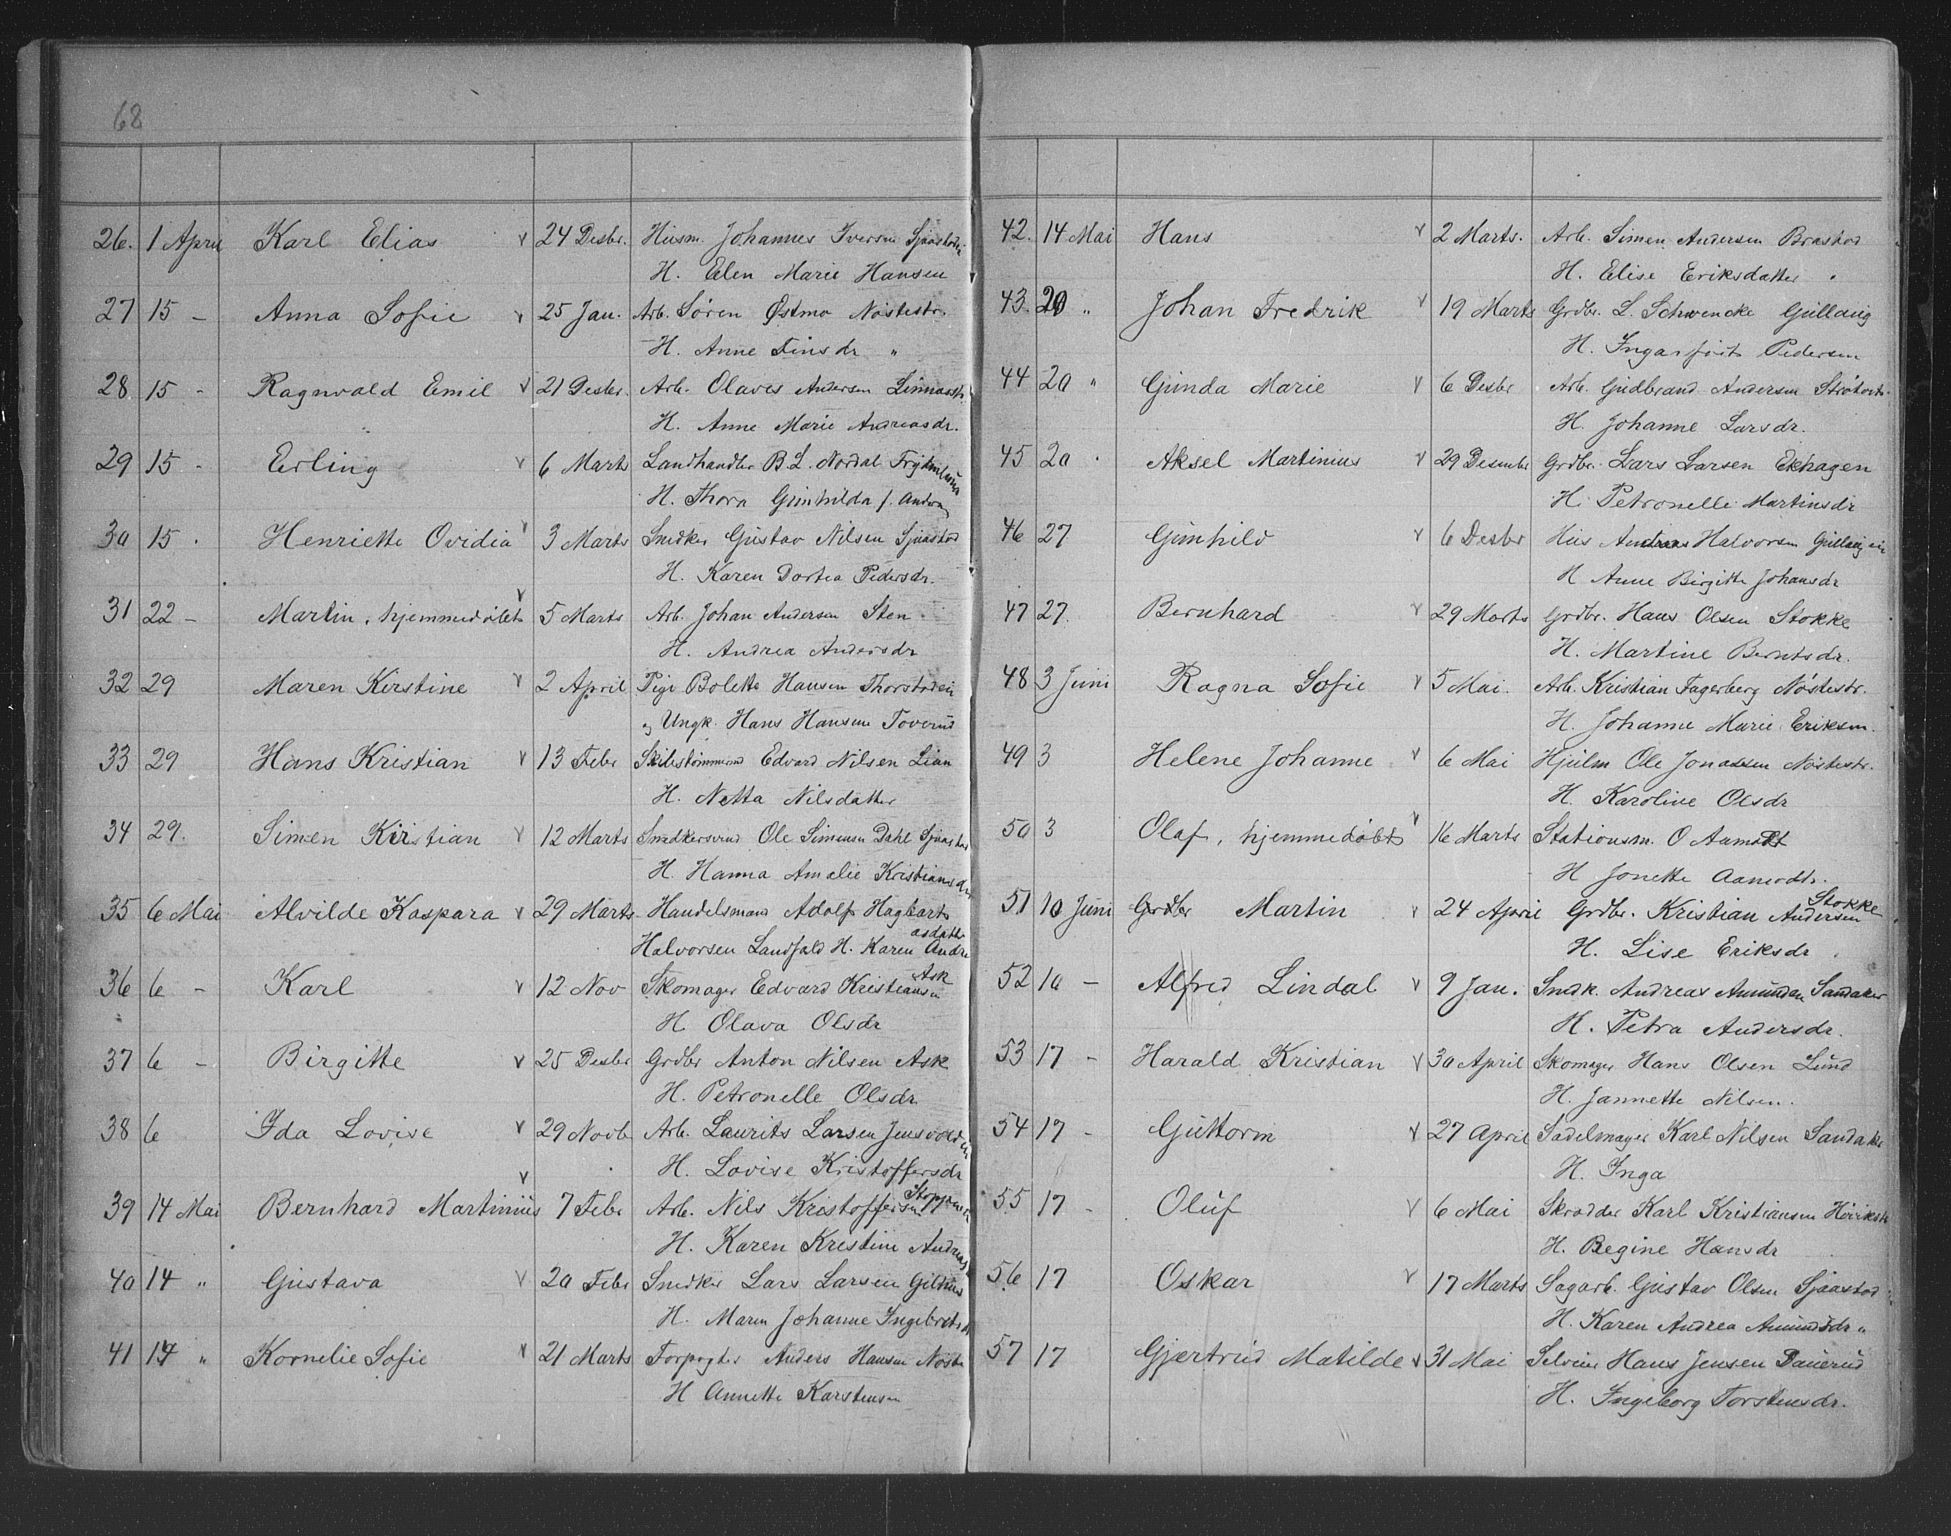 68
26. 1 April Karl Elias v 24 Desbr. Husm. Johannes Iversen
H. Elen Marie Hansen
27 15 - Anna Sofie v 25 Jan. Arb. Søren Østmo Nøstestr.
H. Anne Finsdr "
28 15 - Ragnvald Emil v 21 Desbr. Arb. Olaves Andersen
H. Anne Marie Andreasdr.
29 15 - Erling v 6 Marts Landhandler B. L. Nordal
H. Thora Gunhilda f.
30 15 . Henriette Ovidia v 3 Marts Snedker Gustav Nilsen Sjaastad
H. Karen Dortea Pedersdr.
31 22 - Martin, hjemmedøbt v 5 Marts Arb. Johan Andersen Sten
H. Andrea Andersdr
32 29 Maren Kirstine v 2 April Pige Bolette Hansen
og Ungk. Hans Hansen Toverud
33 29 Hans Kristian v 13 Febr Skibstømmermd Edvard Nilsen Lian
H. Netta Nilsdatter
34 29. Simen Kristian v 12 Marts Snedkersvend Ole Simensen Dahl
H. Hanna Amalie Kristiansdr
35 6 Mai Alvilde Kaspara v 29 Marts Handelsmand Adolf Hagbart
Halvorsen Landfald H. Karen Andreasdatter
36 6 - Karl v 12 Nov Skomager Edvard Kristiansen Ask
H. Olava Olsdr
37 6 - Birgitte v 25 Desbr Grdbr Anton Nilsen Ask
H. Petronelle Olsdr
38 6 Ida Lovise v 29 Novb Arb. Laurits Larsen
H. Lovise Kristoffersdr
39 14 Mai Bernhard Martinius v 7 Febr Arb. Nils Kristoffersen
H. Karen Kristine
40 14 " Gustava v 20 Febr Snedker Lars Larsen Gilhus
H. Maren Johanne Ingebretsdr
41 14 " Kornelie Sofie v 21 Marts Forpagter Anders Hansen Nøste
H Annette Karstensen
42. 14 Mai Hans v 2 Marts. Arb. Simen Andersen
H. Elise Eriksdatter "
43. 20 " Johan Fredrik v 19 Marts Grdbr. L. Schwencke Gullaug
H. Pedersen
44 20 " Gunda Marie v 6 Desbr Arb. Gudbrand Andersen
H. Johanne Larsdr.
45 20 " Aksel Martinius v 29 Desember Grdbr. Lars Larsen Ekhagen
H. Petronelle Martinsdr
46 27 Gunhild v 6 Desbr Hus Andreas Halvorsen
H Anne Birgitte Johansdr
47 27. Bernhard v 29 Marts Grdbr. Hans Olsen Stokke
H. Martine Berntsdr.
48 3 Juni Ragna Sofie v 5 Mai. Arb. Kristian Fagerberg Nøstestr.
H. Johanne Marie Eriksen
49 3 Helene Johanne v 6 Mai Hjulm Ole Jonassen Nøstestr.
H. Karoline Olsdr
50 3 Olaf, hjemmedøbt v 16 Marts Stationsm. O Aamodt
H Jonette Aamodt.
51 10 Juni Grdbr Martin v 24 April Grdbr. Kristian Andersen Stokke
H. Lise Eriksdr
52 10 - Alfred Lindal v 9 Jan. Snedk. Andreas Amundsen Sandaker
H. Petra Andersdr.
53 17 - Harald Kristian v 30 April Skomager Hans Olsen Lund
H. Jannette Nilsen.
54 17 - Guttorm v 27 April Sadelmager Karl Nilsen Sandaker
H. Inga
55 17 - Oluf v 6 Mai Skrædder Karl Kristiansen
H. Regine Hansdr
56 17 Oskar v 17 Marts Sagarb. Gustav Olsen Sjaastad
H. Karen Andrea Amundsdr "
57 17 Gjertrud Matilde v 31 Mai Selveier Hans Jensen
H. Ingeborg Torstensdr.